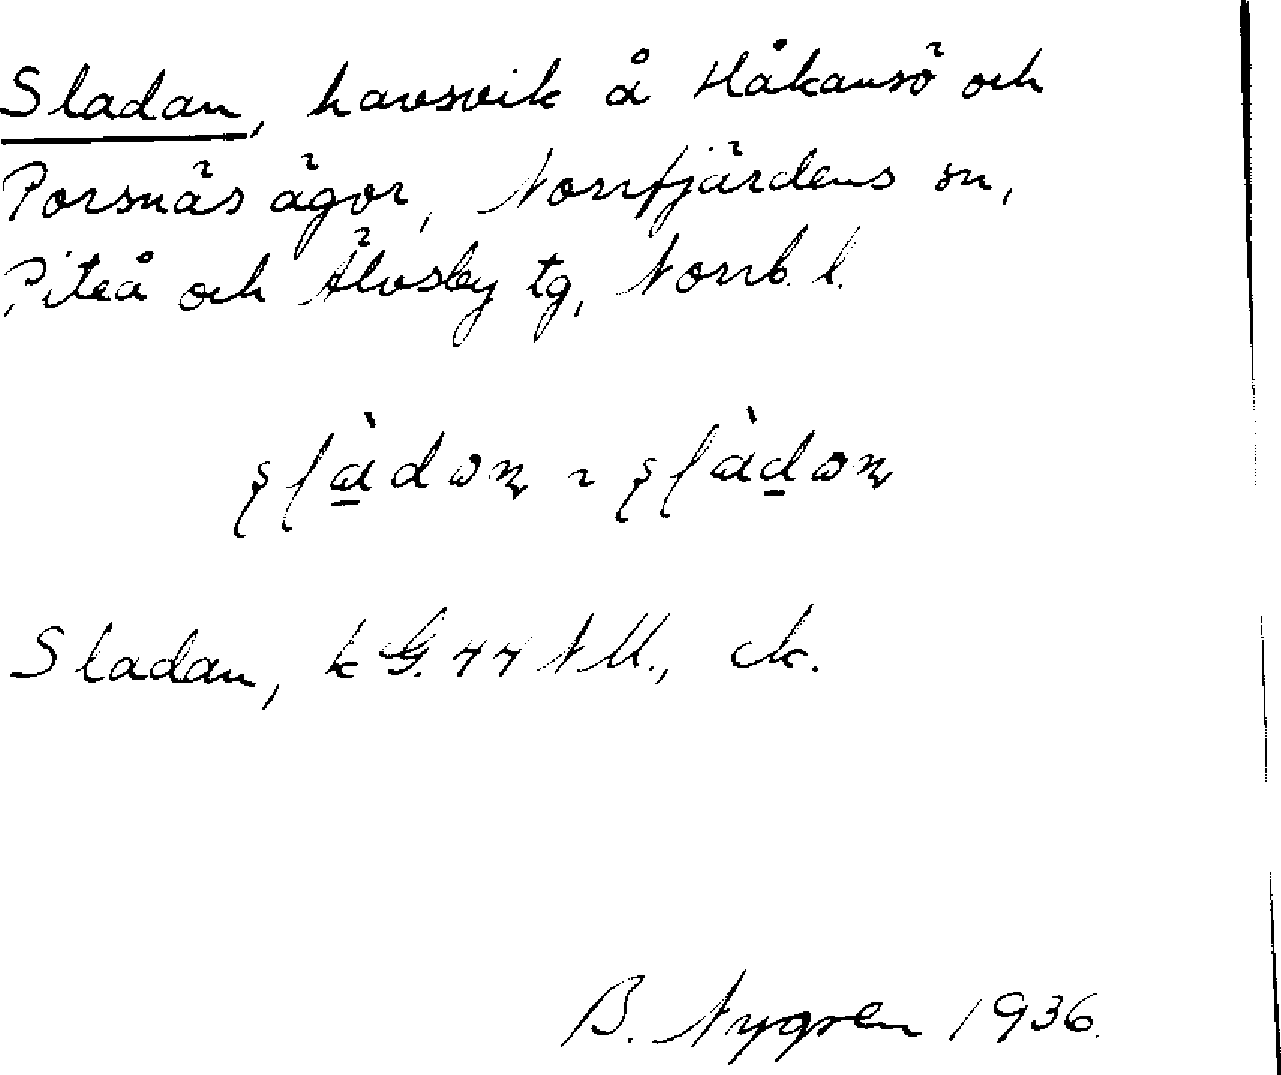 Sladan, havsvik å Håkansö och
Porsnäs ägor, Norrfjärdens sn,
Piteå och Älvsby tg, Norrb. l.
Sladan, k G. 77 NV., ek.
B. Nygren 1936.